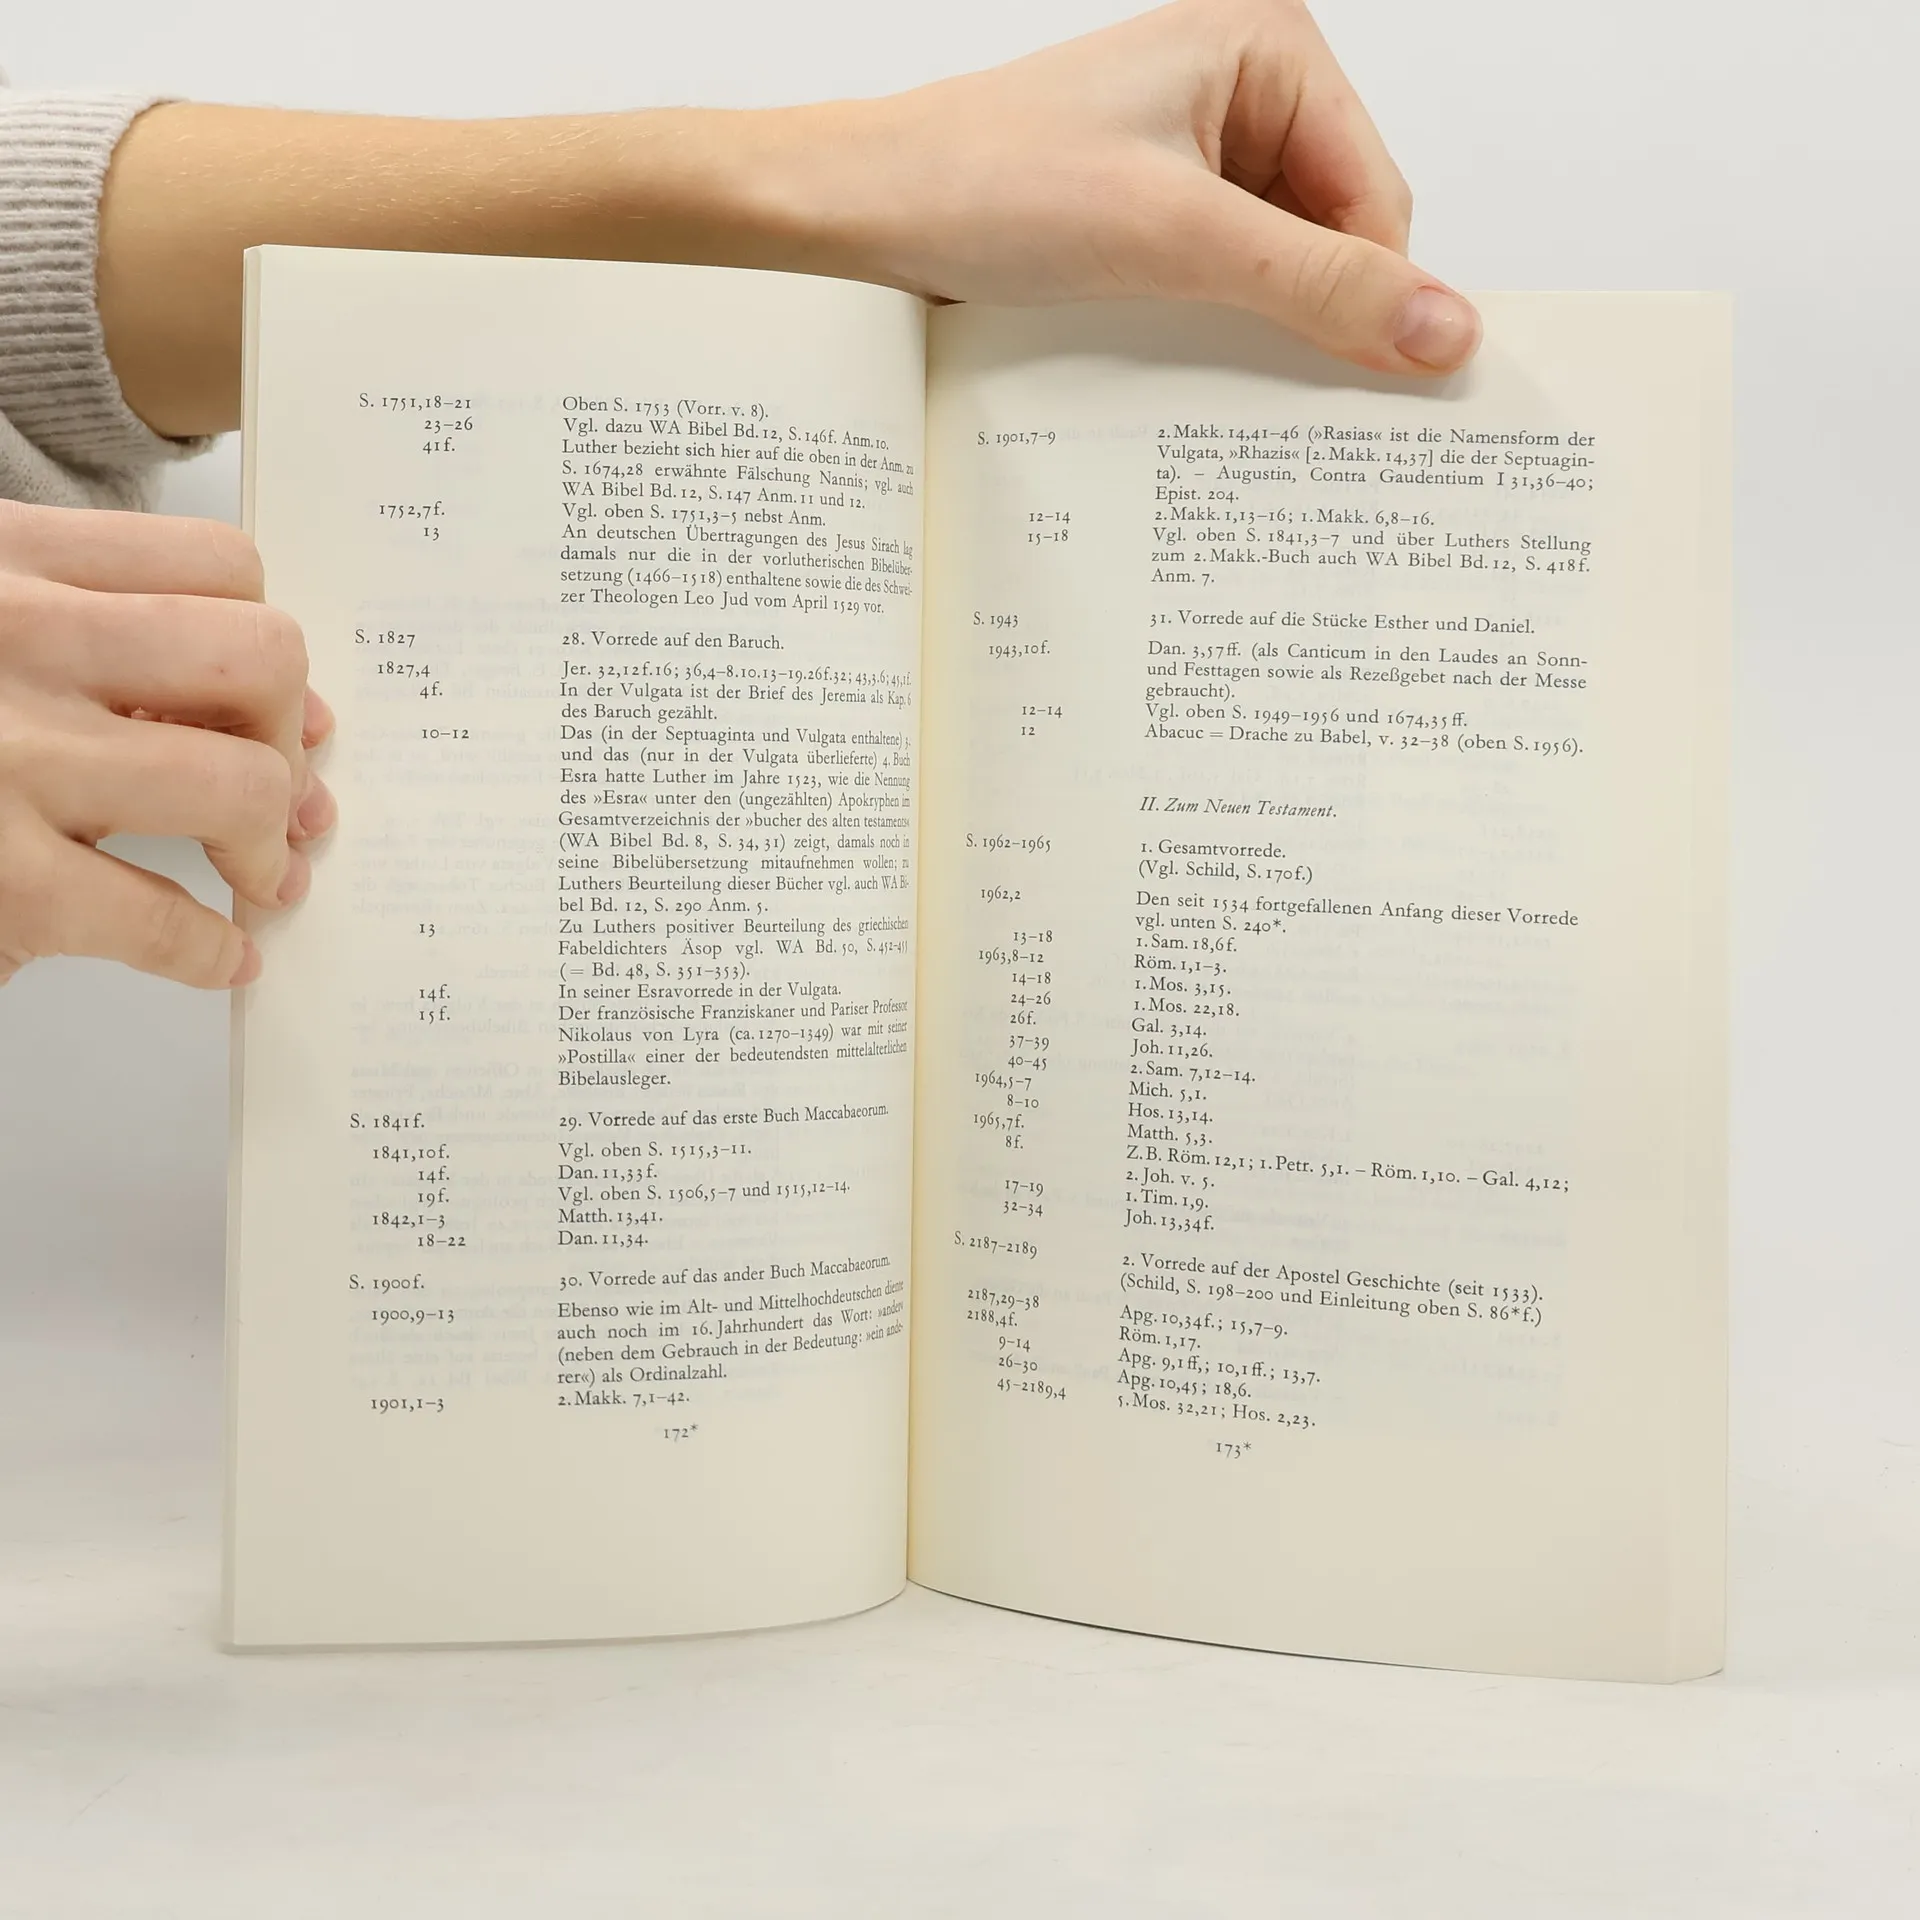 S. 1751,18–21 Oben S. 1753 (Vorr. v. 8).
23–26 Vgl. dazu WA Bibel Bd. 12, S. 146f. Anm. 10.
41f. Luther bezieht sich hier auf die oben in der Anm. zu
S. 1674,28 erwähnte Fälschung Nannis; vgl. auch
WA Bibel Bd. 12, S. 147 Anm. 11 und 12.
1752,7f. Vgl. oben S. 1751,3–5 nebst Anm.
13 An deutschen Übertragungen des Jesus Sirach lag
damals nur die in der vorlutherischen Bibelüber-
setzung (1466–1518) enthaltene sowie die des Schwei-
zer Theologen Leo Jud vom April 1529 vor.
S. 1827 28. Vorrede auf den Baruch.
1827,4 Jer. 32,12f.16; 36,4–8.10.13–19.26f.32; 43,3.6; 45,1f.
4f. In der Vulgata ist der Brief des Jeremia als Kap. 6
des Baruch gezählt.
10–12 Das (in der Septuaginta und Vulgata enthaltene) 3.
und das (nur in der Vulgata überlieferte) 4. Buch
Esra hatte Luther im Jahre 1523, wie die Nennung
des »Esra« unter den (ungezählten) Apokryphen im
Gesamtverzeichnis der »bucher des alten testaments«
(WA Bibel Bd. 8, S. 34, 31) zeigt, damals noch in
seine Bibelübersetzung mitaufnehmen wollen; zu
Luthers Beurteilung dieser Bücher vgl. auch WA Bi-
bel Bd. 12, S. 290 Anm. 5.
13 Zu Luthers positiver Beurteilung des griechischen
Fabeldichters Äsop vgl. WA Bd. 50, S. 452–455
(= Bd. 48, S. 351–353).
14f. In seiner Esravorrede in der Vulgata.
15f. Der französische Franziskaner und Pariser Professor
Nikolaus von Lyra (ca. 1270–1349) war mit seiner
»Postilla« einer der bedeutendsten mittelalterlichen
Bibelausleger.
S. 1841f. 29. Vorrede auf das erste Buch Maccabaeorum.
1841,10f. Vgl. oben S. 1515,3–11.
14f. Dan. 11,33f.
19f. Vgl. oben S. 1506,5–7 und 1515,12–14.
1842,1–3 Matth. 13,41.
18–22 Dan. 11,34.
S. 1900f. 30. Vorrede auf das ander Buch Maccabaeorum.
1900,9–13 Ebenso wie im Alt- und Mittelhochdeutschen diente
auch noch im 16. Jahrhundert das Wort: »ander«
(neben dem Gebrauch in der Bedeutung: »ein ande-
rer«) als Ordinalzahl.
1901,1–3 2. Makk. 7,1–42.
172*
S. 1901,7–9 2. Makk. 14,41–46 (»Rasias« ist die Namensform der
Vulgata, »Rhazis« [2. Makk. 14,37] die der Septuagin-
ta). – Augustin, Contra Gaudentium I 31,36–40;
Epist. 204.
12–14 2. Makk. 1,13–16; 1. Makk. 6,8–16.
15–18 Vgl. oben S. 1841,3–7 und über Luthers Stellung
zum 2. Makk.-Buch auch WA Bibel Bd. 12, S. 418f.
Anm. 7.
S. 1943 31. Vorrede auf die Stücke Esther und Daniel.
1943,10f. Dan. 3,57ff. (als Canticum in den Laudes an Sonn-
und Festtagen sowie als Rezeßgebet nach der Messe
gebraucht).
12–14 Vgl. oben S. 1949–1956 und 1674,35ff.
12 Abacuc = Drache zu Babel, v. 32–38 (oben S. 1956).
II. Zum Neuen Testament.
S. 1962–1965 1. Gesamtvorrede.
(Vgl. Schild, S. 170f.)
1962,2 Den seit 1534 fortgefallenen Anfang dieser Vorrede
vgl. unten S. 240*.
13–18 1. Sam. 18,6f.
1963,8–12 Röm. 1,1–3.
14–18 1. Mos. 3,15.
24–26 1. Mos. 22,18.
26f. Gal. 3,14.
37–39 Joh. 11,26.
40–45 2. Sam. 7,12–14.
1964,5–7 Mich. 5,1.
8–10 Hos. 13,14.
1965,7f. Matth. 5,3.
8f. Z.B. Röm. 12,1; 1. Petr. 5,1. – Röm. 1,10. – Gal. 4,12;
2. Joh. v. 5.
17–19 1. Tim. 1,9.
32–34 Joh. 13,34f.
S. 2187–2189 2. Vorrede auf der Apostel Geschichte (seit 1533).
(Schild, S. 198–200 und Einleitung oben S. 86*f.)
2187,29–38 Apg. 10,34f.; 15,7–9.
2188,4f. Röm. 1,17.
9–14 Apg. 9,1ff,; 10,1ff.; 13,7.
26–30 Apg. 10,45; 18,6.
45–2189,4 5. Mos. 32,21; Hos. 2,23.
173*